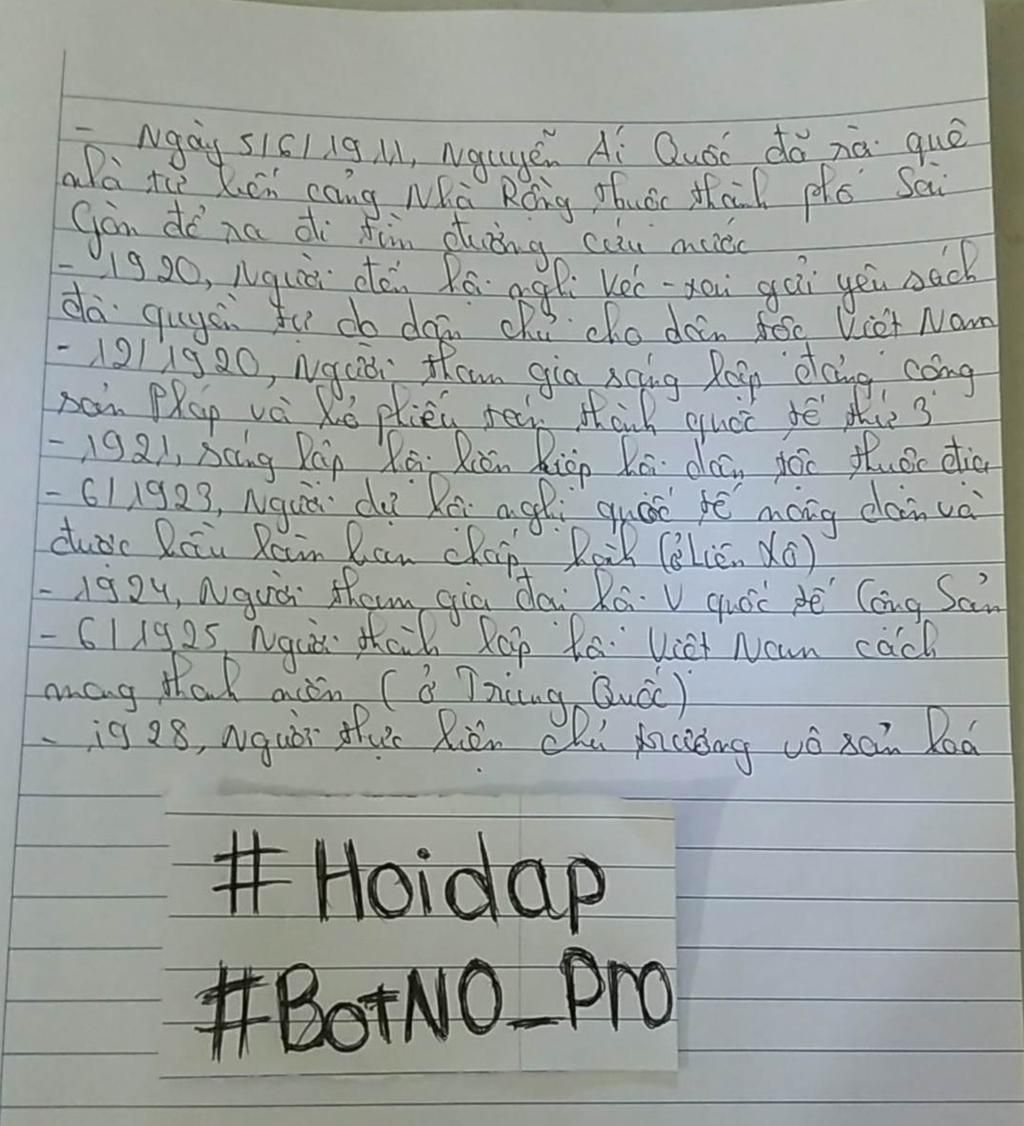 - Ngày 5/6/1911, Nguyễn Ái Quốc đã rời quê
nhà từ bến cảng Nhà Rồng thuộc thành phố Sài
Gòn để ra đi tìm đường cứu nước
- 1920, Người đến hội nghị Véc-xai gửi yêu sách
đòi quyền tự do dân chủ cho dân tộc Việt Nam
- 12/1920, Người tham gia sáng lập đảng cộng
sản Pháp và bỏ phiếu tán thành quốc tế thứ 3
- 1921, sáng lập hội liên hiệp hội dân tộc thuộc địa
- 6/1923, Người dự hội nghị quốc tế nông dân và
được bầu làm ban chấp hành (ở Liên Xô)
- 1924, Người tham gia đại hội V quốc tế Cộng Sản
- 6/1925, Người thành lập hội Việt Nam cách
mạng thanh niên (ở Trung Quốc)
- 1928, Người thực hiện chủ trương vô sản hoá
#Hoidap
#BotNO_Pro